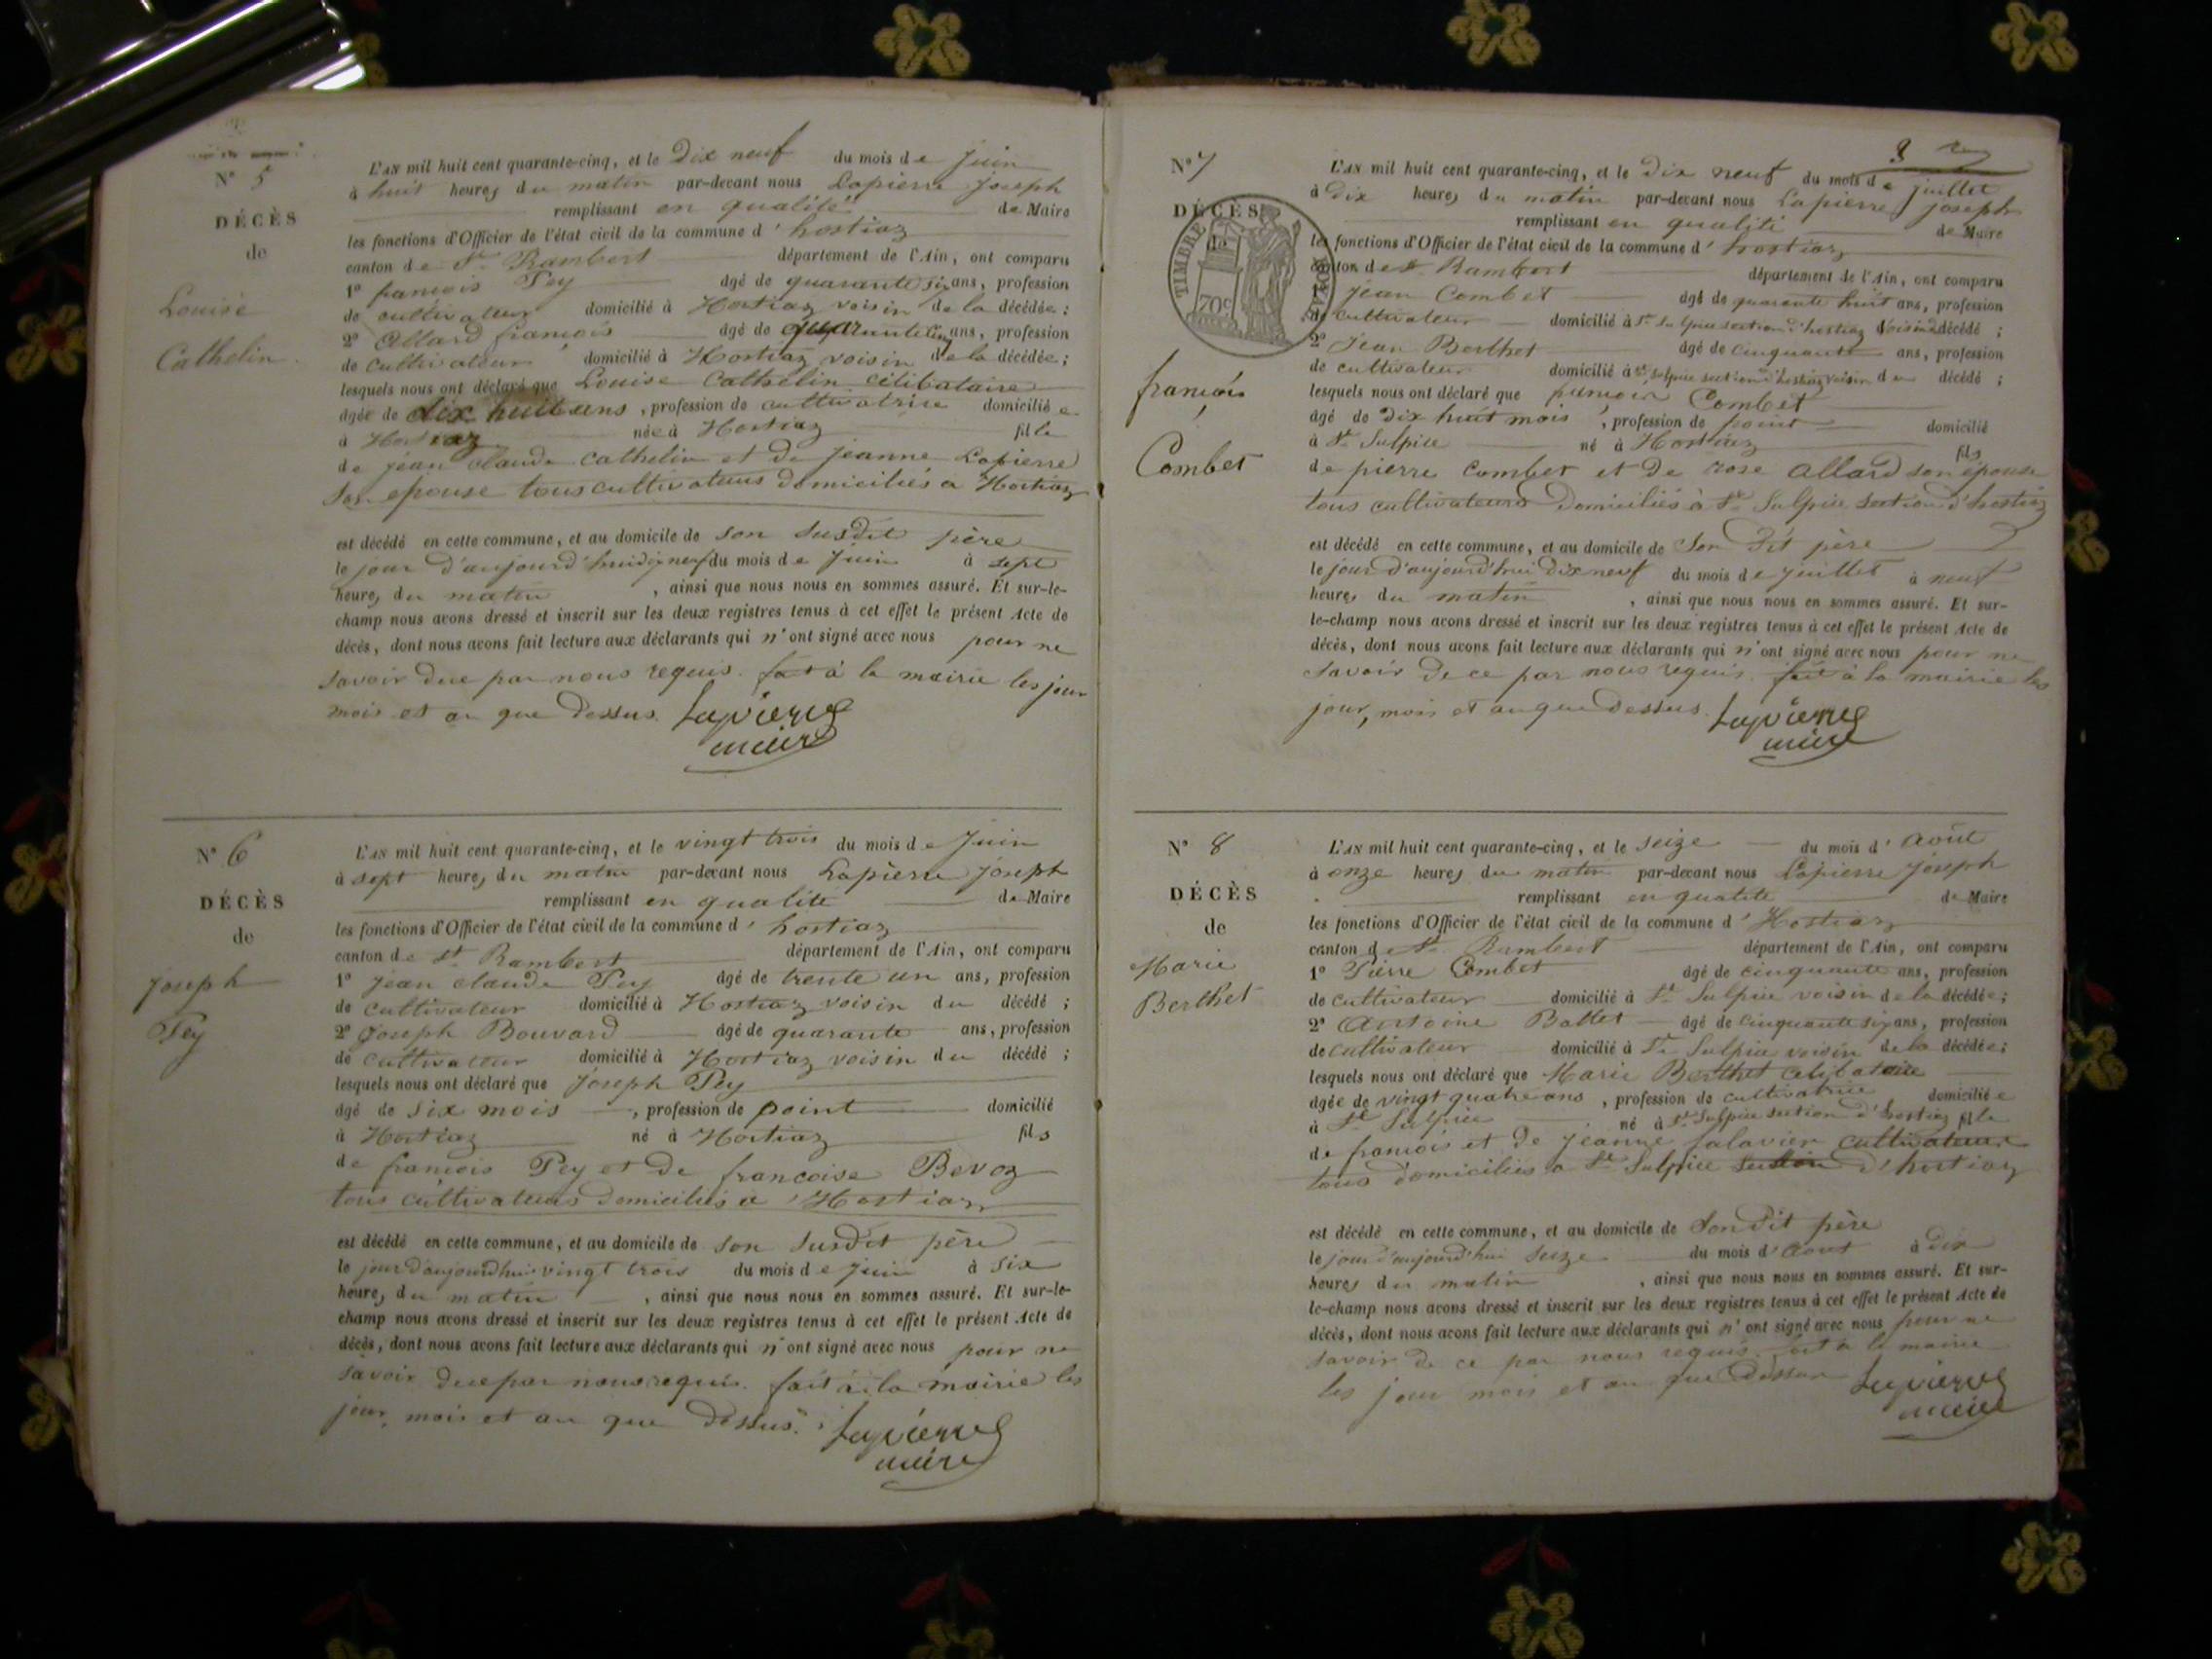 N° 5
DÉCÈS
de
Louise
Cathelin.
L'AN mil huit cent quarante-cinq, et le Dix neuf du mois de Juin
à huit heures du matin par-devant nous Lapierre Joseph
remplissant en qualité de Maire
les fonctions d'Officier de l'état civil de la commune d'hostiaz
canton de St Rambert département de l'Ain, ont comparu
1° françois Pey âgé de quarante six ans, profession
de cultivateur domicilié à Hostiaz voisin de la décédée ;
2° Allard françois âgé de quarante cinq ans, profession
de cultivateur domicilié à Hostiaz voisin de la décédée ;
lesquels nous ont déclaré que Louise Cathelin célibataire
âgée de dix huit ans, profession de cultivatrice domiciliée
à Hostiaz née à Hostiaz fille
de jean claude cathelin et de jeanne Lapierre
son epouse tous cultivateurs domiciliés a Hostiaz
est décédé en cette commune, et au domicile de son susdit père
le jour d'aujourd'hui dix neuf du mois de juin à sept
heures du matin, ainsi que nous nous en sommes assuré. Et sur-le-
champ nous avons dressé et inscrit sur les deux registres tenus à cet effet le présent Acte de
décès, dont nous avons fait lecture aux déclarants qui n'ont signé avec nous pour ne
savoir de ce par nous requis. fait à la mairie les jour
mois et an que dessus. Lapierre
maire
N° 6
DÉCÈS
de
joseph
Pey
L'AN mil huit cent quarante-cinq, et le vingt trois du mois de Juin
à sept heures du matin par-devant nous Lapierre Joseph
remplissant en qualité de Maire
les fonctions d'Officier de l'état civil de la commune d'hostiaz
canton de St Rambert département de l'Ain, ont comparu
1° Jean claude Pey âgé de trente un ans, profession
de cultivateur domicilié à Hostiaz voisin du décédé ;
2° Joseph Bouvard âgé de quarante ans, profession
de cultivateur domicilié à Hostiaz voisin du décédé ;
lesquels nous ont déclaré que Joseph Pey
âgé de six mois, profession de point domicilié
à Hostiaz né à Hostiaz fils
de françois Pey et de françoise Bevoz
tous cultivateurs domiciliés a Hostiaz
est décédé en cette commune, et au domicile de son susdit père
le jour d'aujourd'hui vingt trois du mois de juin à six
heures du matin, ainsi que nous nous en sommes assuré. Et sur-le-
champ nous avons dressé et inscrit sur les deux registres tenus à cet effet le présent Acte de
décès, dont nous avons fait lecture aux déclarants qui n'ont signé avec nous pour ne
savoir de ce par nous requis. fait à la mairie les
jour, mois et an que dessus. Lapierre
maire
N° 7
DÉCÈS
de
TIMBRE ROYAL
70c
françois
Combet
L'AN mil huit cent quarante-cinq, et le dix neuf du mois de juillet
à Dix heures du matin par-devant nous Lapierre joseph
remplissant en qualité de Maire
les fonctions d'Officier de l'état civil de la commune d'hostiaz
canton de St Rambert département de l'Ain, ont comparu
1° Jean Combet âgé de quarante huit ans, profession
de cultivateur domicilié à St Sulpice section d'hostiaz voisin du décédé ;
2° Jean Berthet âgé de cinquante ans, profession
de cultivateur domicilié à St Sulpice section d'hostiaz voisin du décédé ;
lesquels nous ont déclaré que françois Combet
âgé de dix huit mois, profession de point domicilié
à St Sulpice né à Hostiaz fils
de pierre Combet et de rose Allard son épouse
tous cultivateurs domiciliés à St Sulpice section d'hostiaz
est décédé en cette commune, et au domicile de son dit père
le jour d'aujourd'hui dix neuf du mois de juillet à neuf
heures du matin, ainsi que nous nous en sommes assuré. Et sur-
le-champ nous avons dressé et inscrit sur les deux registres tenus à cet effet le présent Acte de
décès, dont nous avons fait lecture aux déclarants qui n'ont signé avec nous pour ne
savoir de ce par nous requis. fait à la mairie les
jour, mois et an que dessus. Lapierre
maire
N° 8
DÉCÈS
de
Marie
Berthet
L'AN mil huit cent quarante-cinq, et le seize du mois d'Août
à onze heures du matin par-devant nous Lapierre Joseph
remplissant en qualité de Maire
les fonctions d'Officier de l'état civil de la commune d'Hostiaz
canton de St Rambert département de l'Ain, ont comparu
1° Pierre Combet âgé de cinquante ans, profession
de cultivateur domicilié à St Sulpice voisin de la décédée ;
2° Antoine Ballet âgé de cinquante six ans, profession
de cultivateur domicilié à St Sulpice voisin de la décédée ;
lesquels nous ont déclaré que Marie Berthet célibataire
âgée de vingt quatre ans, profession de cultivatrice domiciliée
à St Sulpice né à St Sulpice section d'hostiaz fille
de françois et de jeanne falavier cultivateurs
tous domiciliés a St Sulpice section d'hostiaz
est décédé en cette commune, et au domicile de son dit père
le jour d'aujourd'hui seize du mois d'Aout à dix
heures du matin, ainsi que nous nous en sommes assuré. Et sur-
le-champ nous avons dressé et inscrit sur les deux registres tenus à cet effet le présent Acte de
décès, dont nous avons fait lecture aux déclarants qui n'ont signé avec nous pour ne
savoir de ce par nous requis. fait a la mairie
les jour mois et an que dessus Lapierre
maire